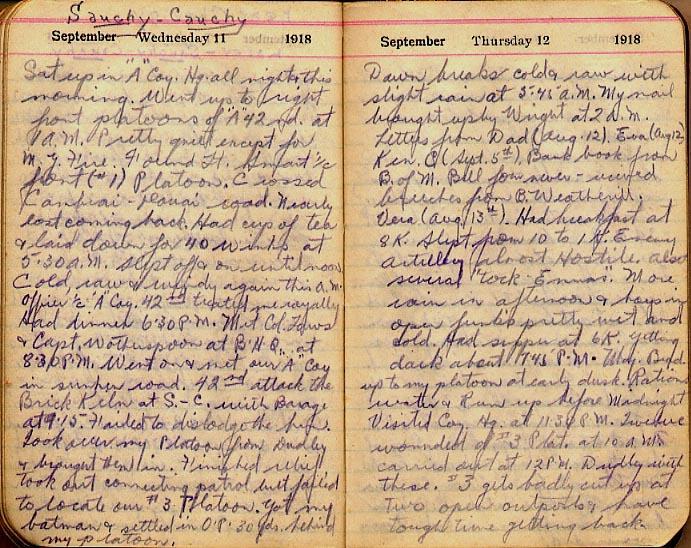 Sauchy-Cauchy
September Wednesday 11 1918
Sat up in "A" Coy. Hq. all night & this
morning. Went up to right
front platoons of "A" 42nd. at
1 A.M. Pretty quiet except for
M. G. Fire. Found Lt. i/c
front (#1) Platoon. Crossed
Cambrai - road. Nearly
lost coming back. Had cup of tea
& laid down for 40 winks at
5:30 A.M. Slept off & on until noon
Cold, raw & windy again this A.M.
Officer i/c "A" Coy. 42nd treated me royally
Had dinner 6:30 P.M. Met Col.
& Capt. Wotherspoon at B.H.Q. at
8:30 P.M. Went on & met our "A" Coy
in sunken road. 42nd attack the
Brick Kiln at S.-C. with Barage
at 9:15. Failed to dislodge the hun.
Took over my Platoon from Dudley
& brought them in. Finished relief
took out connecting patrol but failed
to locate our #3 Platoon. Got my
batman & settled in O.P. 30 yds. behind
my platoon.
September Thursday 12 1918
Dawn breaks cold & raw with
slight rain at 5:45 A.M. My mail
brought up by Wright at 2 A.M.
Letters from Dad (Aug. 12). Eva (Aug 12)
Ken. C (Sept. 5th), Bank book from
B. of M. Bill for never-received
breeches from B. Weatherill.
Vera (Aug 13th). Had breakfast at
8K. Slept from 10 to 1 K. Enemy
artillery almost Hostile. also
several "Tock-Emmas". More
rain in afternoon & boys in
open funks pretty wet and
cold. Had supper at 6K. Getting
dark about 7:45 P.M. Wdy.
up to my platoon at early dusk. Rations
water & Rum up before Midnight
Visited Coy. Hq. at 11:30 P.M.
wounded of #3 Plat. at 10 A.M.
carried out at 12 P.M. Dudley with
these. #3 gets badly cut up at
two open outposts & have
tough time getting back.